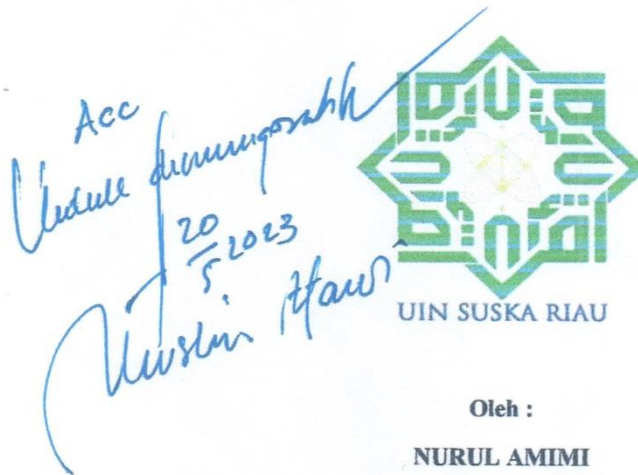 Acc
Untuk dimunaqosahkan
20
5 2023
Muslim Afandi
UIN SUSKA RIAU
Oleh :
NURUL AMIMI